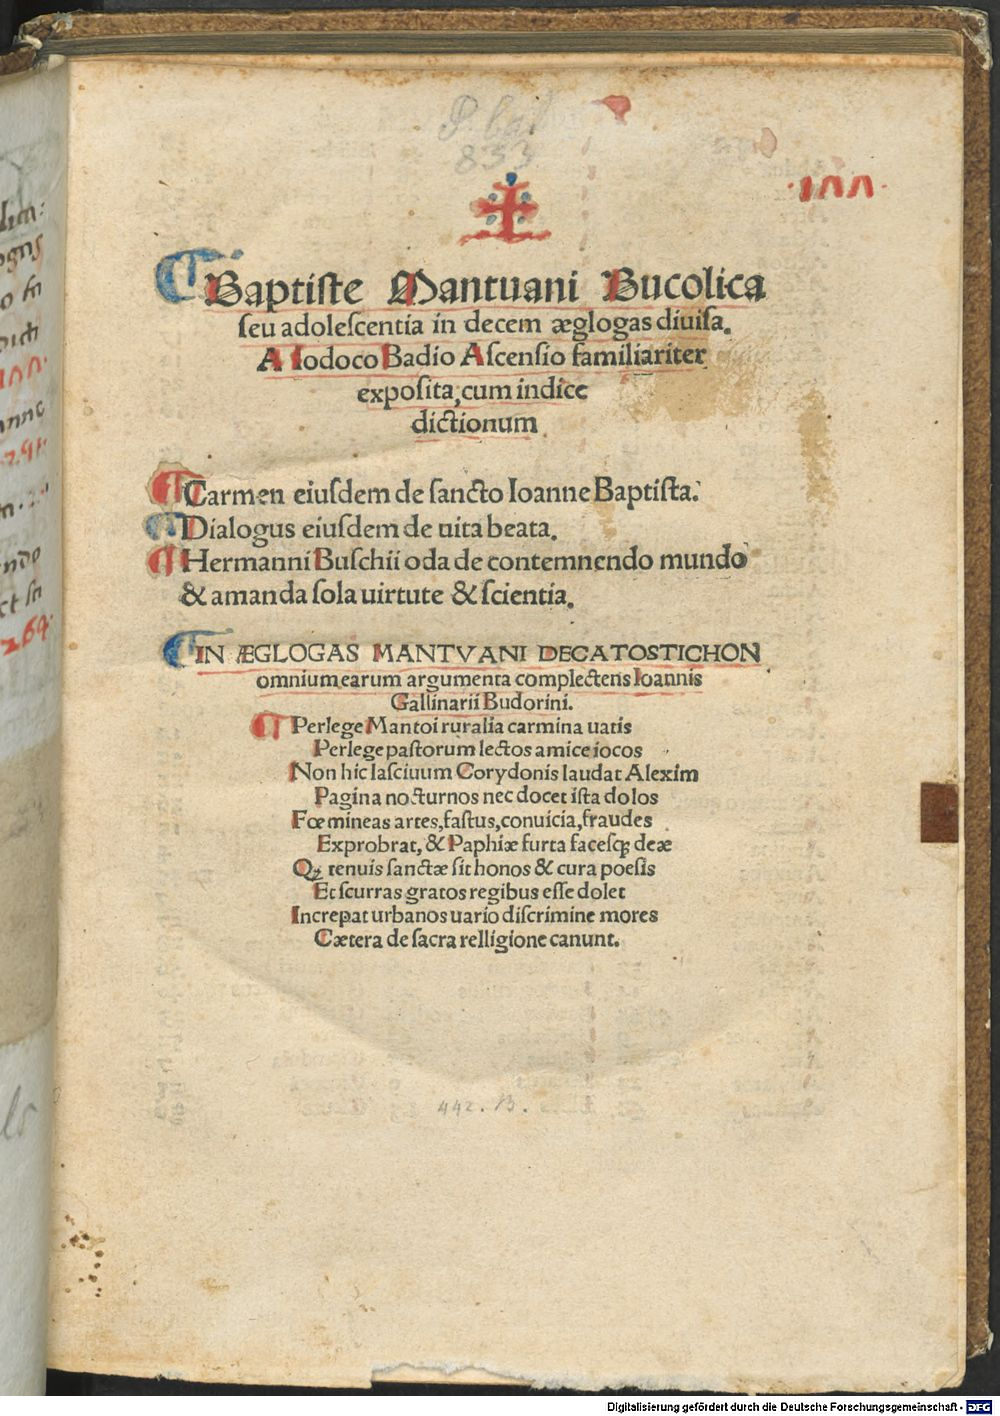 P. lat
833
¶ Baptiste Mantuani Bucolica
seu adolescentia in decem æglogas diuisa.
A Iodoco Badio Ascensio familiariter
exposita, cum indice
dictionum
¶ Carmen eiusdem de sancto Ioanne Baptista.
¶ Dialogus eiusdem de uita beata.
¶ Hermanni Buschii oda de contemnendo mundo
& amanda sola uirtute & scientia.
¶ IN ÆGLOGAS MANTVANI DECATOSTICHON
omnium earum argumenta complectens Ioannis
Gallinarii Budorini.
¶ Perlege Mantoi ruralia carmina uatis
Perlege pastorum lectos amice iocos
Non hic lasciuum Corydonis laudat Alexim
Pagina nocturnos nec docet ista dolos
Fœmineas artes, fastus, conuicia, fraudes
Exprobrat, & Paphiæ furta facesqꝫ deæ
Qꝫ tenuis sanctæ sit honos & cura poesis
Et scurras gratos regibus esse dolet
Increpat urbanos uario discrimine mores
Cætera de sacra relligione canunt.
442. B.
Digitalisierung gefördert durch die Deutsche Forschungsgemeinschaft - DFG